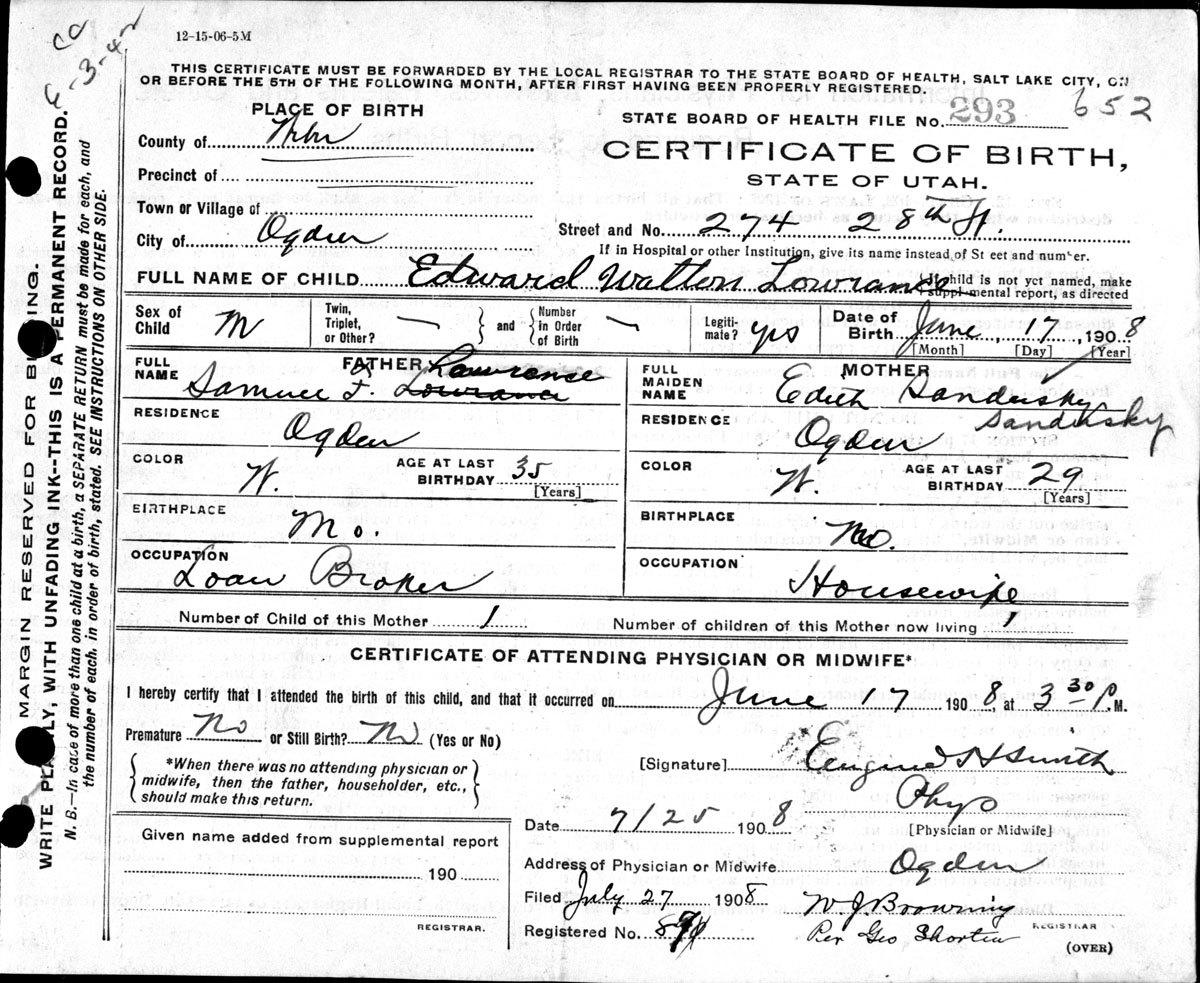 12-15-06-5M
E -3-42
THIS CERTIFICATE MUST BE FORWARDED BY THE LOCAL REGISTRAR TO THE STATE BOARD OF HEALTH, SALT LAKE CITY, ON
OR BEFORE THE 5TH OF THE FOLLOWING MONTH, AFTER FIRST HAVING BEEN PROPERLY REGISTERED.
PLACE OF BIRTH
STATE BOARD OF HEALTH FILE No. 293 652
County of
CERTIFICATE OF BIRTH,
Precinct of
STATE OF UTAH.
Town or Village of
City of Ogden
Street and No. 274 28th St.
If in Hospital or other Institution, give its name instead of St eet and number.
FULL NAME OF CHILD Edward Walton Lowrance
child is not yet named, make supplemental report, as directed
Sex of Child M Twin, Triplet, or Other? — and Number in Order of Birth — Legitimate? yes Date of Birth June 17, 1908
[Month] [Day] [Year]
FATHER
FULL NAME Samuel F. Lowrance Lawrence
RESIDENCE Ogden
COLOR W. AGE AT LAST BIRTHDAY 35
[Years]
BIRTHPLACE Mo.
OCCUPATION Loan Broker
MOTHER
FULL MAIDEN NAME Edith Sandusky
Sandusky
RESIDENCE Ogden
COLOR W. AGE AT LAST BIRTHDAY 29
[Years]
BIRTHPLACE Mo.
OCCUPATION Housewife
Number of Child of this Mother 1 Number of children of this Mother now living 1
CERTIFICATE OF ATTENDING PHYSICIAN OR MIDWIFE*
I hereby certify that I attended the birth of this child, and that it occurred on June 17 1908 at 3 30 P. M.
Premature No or Still Birth? No (Yes or No)
*When there was no attending physician or
midwife, then the father, householder, etc.,
should make this return.
[Signature] Eugene H Smith
Phys
[Physician or Midwife]
Date 7/25 1908
Given name added from supplemental report
190
REGISTRAR.
Address of Physician or Midwife Ogden
Filed July 27 1908 W J Browning
REGISTRAR
Registered No.
Per Geo Shorten
(OVER)
MARGIN RESERVED FOR
WRITE PLAINLY, WITH UNFADING INK--THIS IS A PERMANENT RECORD.
N. B.—In case of more than one child at a birth, a SEPARATE RETURN must be made for each, and
the number of each, in order of birth, stated. SEE INSTRUCTIONS ON OTHER SIDE.